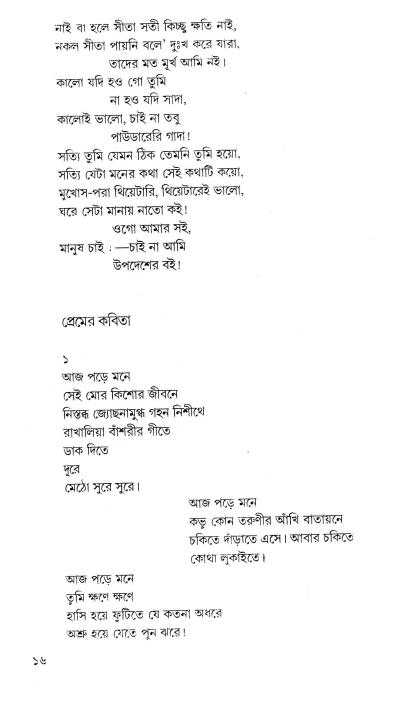 নাই বা হলে সীতা সতী কিচ্ছু ক্ষতি নাই,
নকল সীতা পায়নি বলে' দুঃখ করে যারা,
তাদের মত মূর্খ আমি নই।
কালো যদি হও গো তুমি
না হও যদি সাদা,
কালোই ভালো, চাই না তবু
পাউডারেরি গাদা!
সত্যি তুমি যেমন ঠিক তেমনি তুমি হয়ো,
সত্যি যেটা মনের কথা সেই কথাটি কয়ো,
মুখোস-পরা থিয়েটারি, থিয়েটারেই ভালো,
ঘরে সেটা মানায় নাতো কই!
ওগো আমার সই,
মানুষ চাই : —চাই না আমি
উপদেশের বই!
প্রেমের কবিতা
১
আজ পড়ে মনে
সেই মোর কিশোর জীবনে
নিস্তব্ধ জ্যোছনামুগ্ধ গহন নিশীথে
রাখালিয়া বাঁশরীর গীতে
ডাক দিতে
দূরে
মেঠো সুরে সুরে।
আজ পড়ে মনে
কভু কোন তরুণীর আঁখি বাতায়নে
চকিতে দাঁড়াতে এসে। আবার চকিতে
কোথা লুকাইতে।
আজ পড়ে মনে
তুমি ক্ষণে ক্ষণে
হাসি হয়ে ফুটিতে যে কতনা অধরে
অশ্রু হয়ে যেতে পুন ঝরে!
১৬